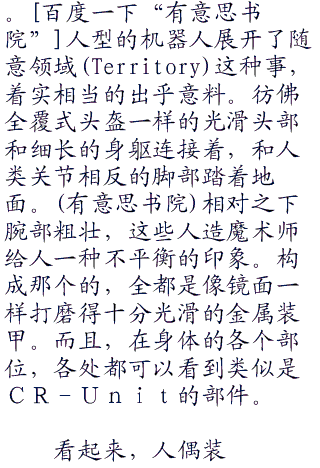 。[百度一下“有意思书
院”]人型的机器人展开了随
意领域(Territory)这种事，
着实相当的出乎意料。彷佛
全覆式头盔一样的光滑头部
和细长的身躯连接着，和人
类关节相反的脚部踏着地
面。(有意思书院)相对之下
腕部粗壮，这些人造魔术师
给人一种不平衡的印象。构
成那个的，全都是像镜面一
样打磨得十分光滑的金属装
甲。而且，在身体的各个部
位，各处都可以看到类似是
ＣＲ－Ｕｎｉｔ的部件。
看起来，人偶装